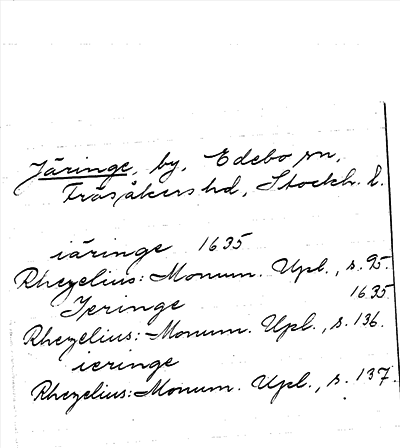 Järinge, by, Edebo sn,
Frösåkers hd, Stockh. l.
iäringe 1635
Rhezelius: Monum. Upl., s. 95.
Jeringe 1635
Rhezelius: Monum. Upl., s. 136.
ieringe
Rhezelius: Monum. Upl., s. 137.